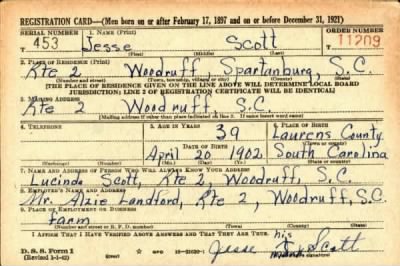 REGISTRATION CARD—(Men born on or after February 17, 1897 and on or before December 31, 1921)
SERIAL NUMBER 1. NAME (Print) ORDER NUMBER
T 453 Jesse Scott 11209
(First) (Middle) (Last)
2. PLACE OF RESIDENCE (Print)
Rte 2 Woodruff Spartanburg, S.C.
(Number and street) (Town, township, village or city) (County) (State)
[THE PLACE OF RESIDENCE GIVEN ON THE LINE ABOVE WILL DETERMINE LOCAL BOARD
JURISDICTION; LINE 2 OF REGISTRATION CERTIFICATE WILL BE IDENTICAL]
3. MAILING ADDRESS
Rte 2 Woodruff, S.C.
[Mailing address if other than place indicated on line 2. If same insert word same]
4. TELEPHONE 5. AGE IN YEARS 6. PLACE OF BIRTH
39 Laurens County
DATE OF BIRTH (Town or county)
April 20 1902 South Carolina
(Exchange) (Number) (Mo.) (Day) (Yr.) (State or country)
7. NAME AND ADDRESS OF PERSON WHO WILL ALWAYS KNOW YOUR ADDRESS
Lucinda Scott, Rte 2, Woodruff, S.C.
8. EMPLOYER'S NAME AND ADDRESS
Mr. Alzie Landford, Rte 2, Woodruff, S.C.
9. PLACE OF EMPLOYMENT OR BUSINESS
farm
(Number and street or R. F. D. number) (Town) (County) (State)
I AFFIRM THAT I HAVE VERIFIED ABOVE ANSWERS AND THAT THEY ARE TRUE.
his
D. S. S. Form 1 Jesse X Scott
mark